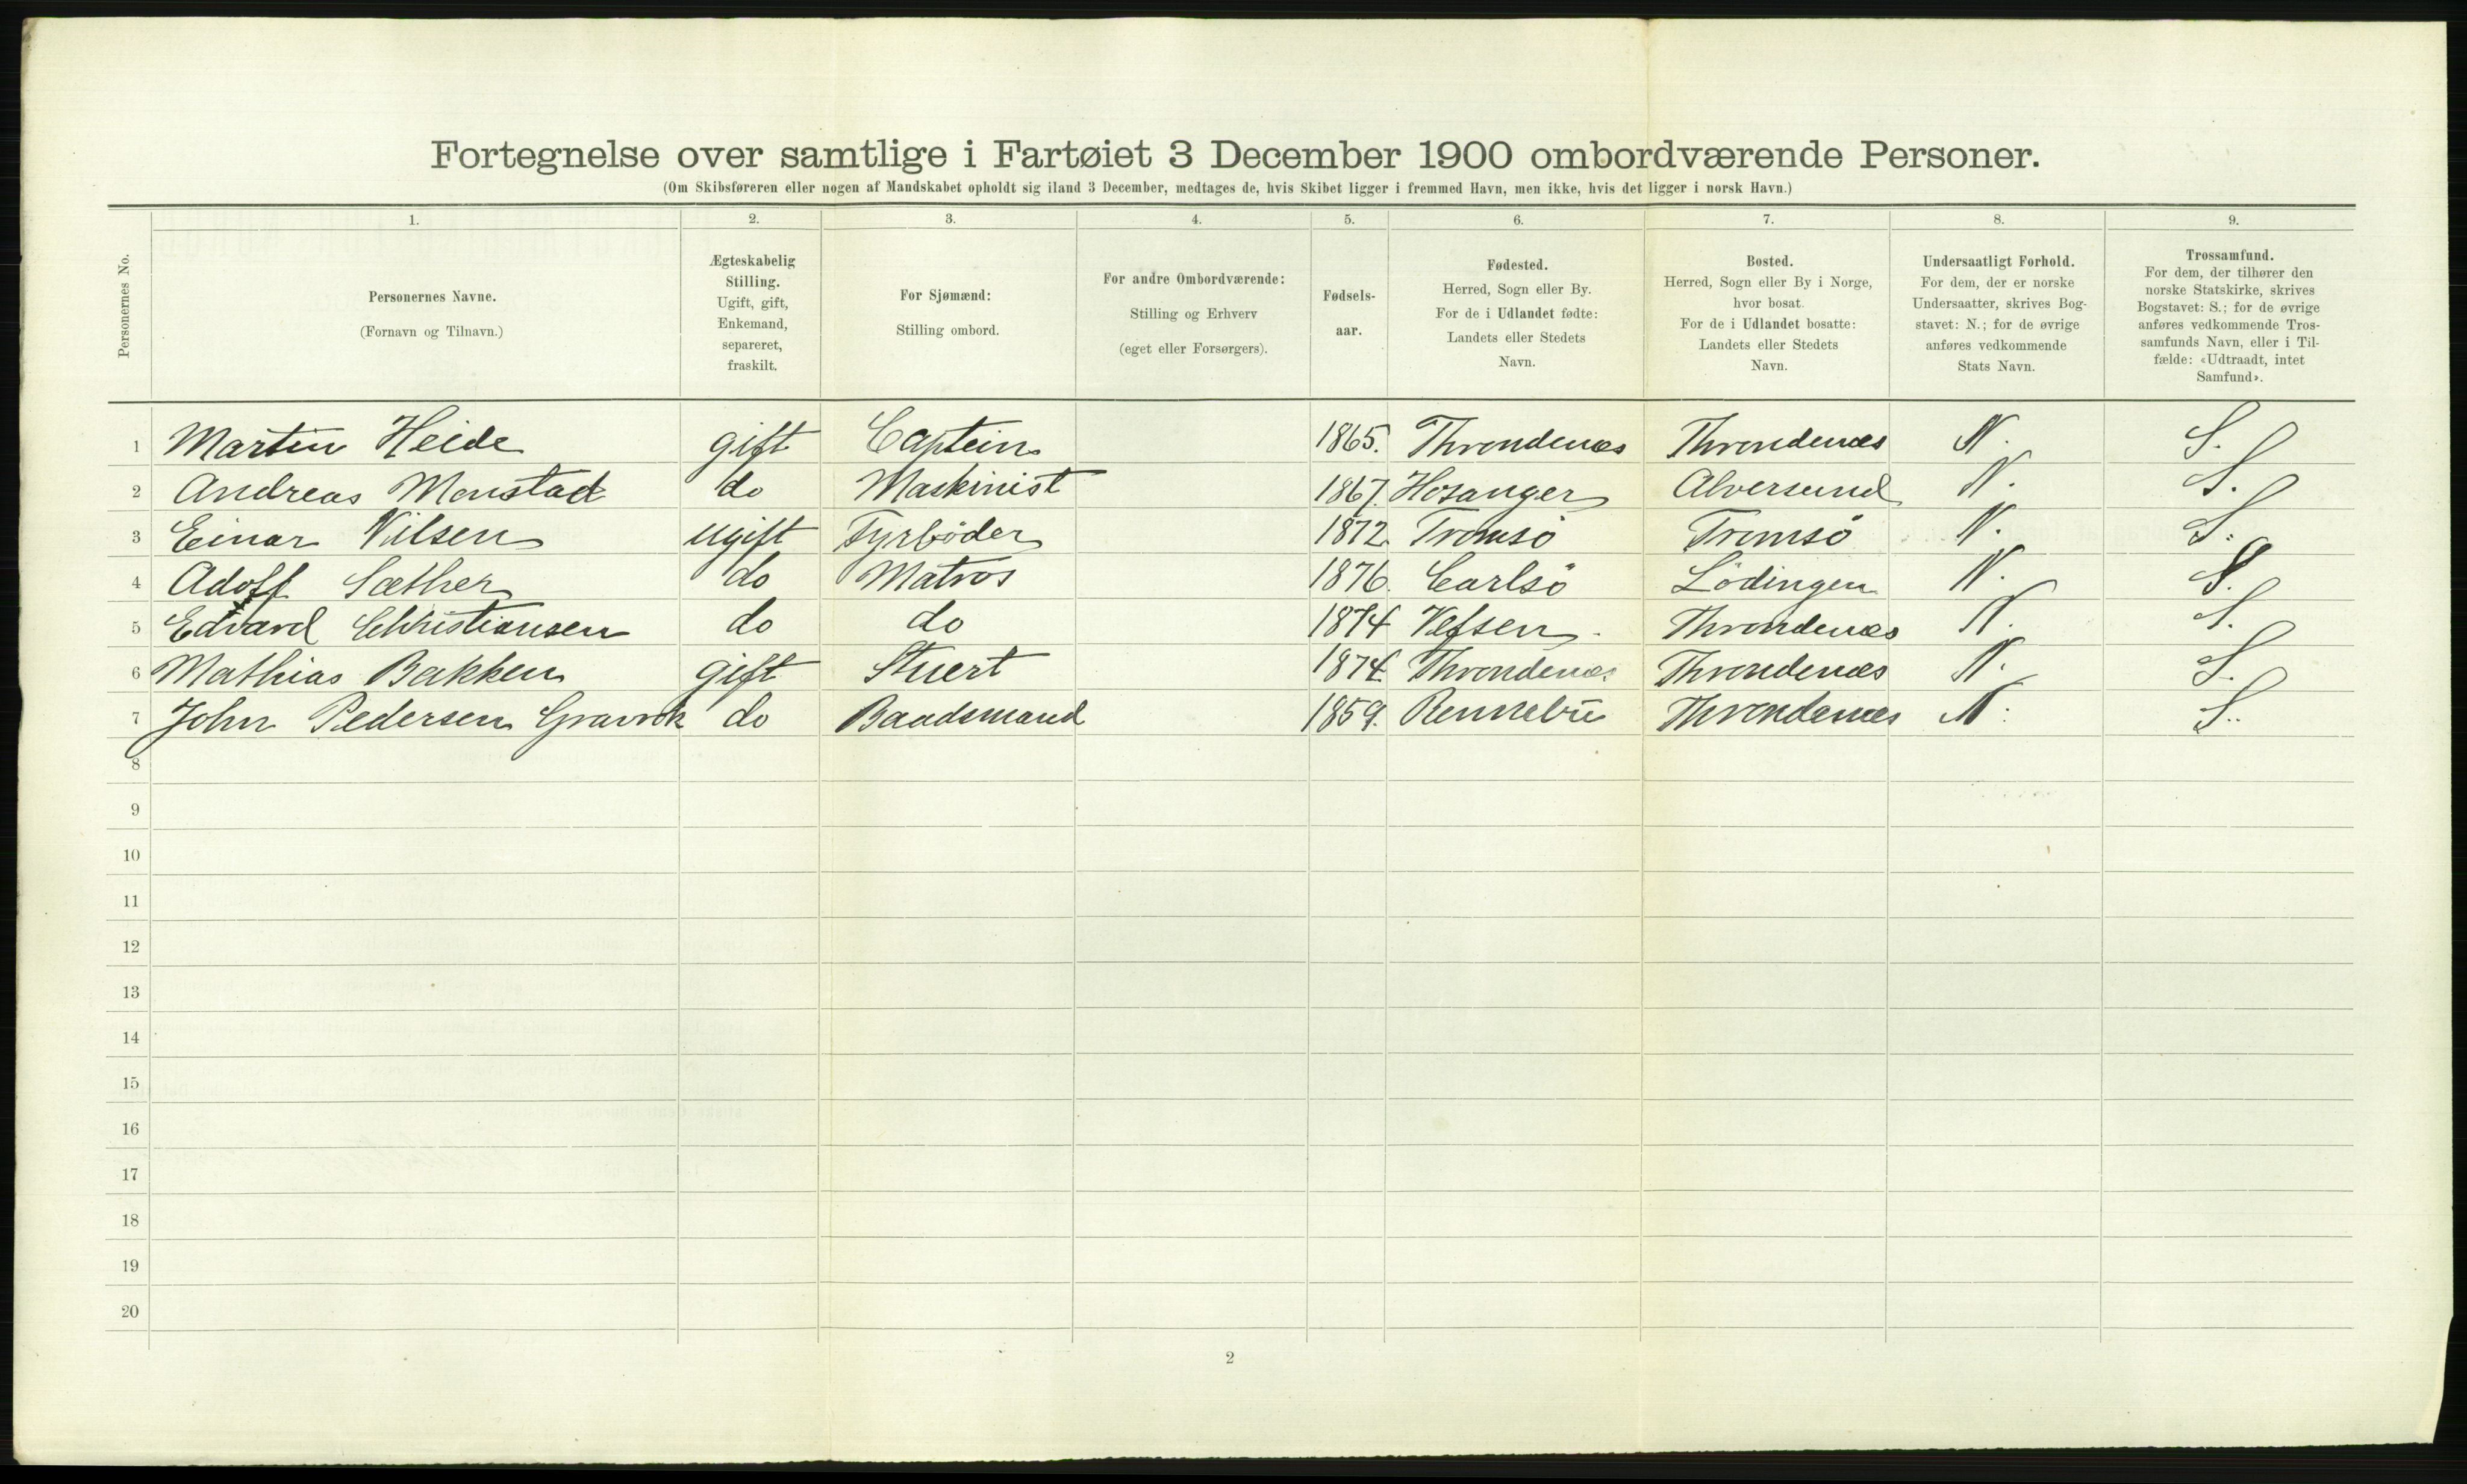 Fortegnelse over samtlige i Fartøiet 3 December 1900 ombordværende Personer.
(Om Skibsføreren eller nogen af Mandskabet opholdt sig iland 3 December, medtages de, hvis Skibet ligger i fremmed Havn, men ikke, hvis det ligger i norsk Havn.)
Personernes No.
1. 2. 3. 4. 5. 6. 7. 8. 9.
Personernes Navne.
(Fornavn og Tilnavn.)
Ægteskabelig
Stilling.
Ugift, gift,
Enkemand,
separeret,
fraskilt.
For Sjømænd:
Stilling ombord.
For andre Ombordværende:
Stilling og Erhverv
(eget eller Forsørgers).
Fødsels-
aar.
Fødested.
Herred, Sogn eller By.
For de i Udlandet fødte:
Landets eller Stedets
Navn.
Bosted.
Herred, Sogn eller By i Norge,
hvor bosat.
For de i Udlandet bosatte:
Landets eller Stedets
Navn.
Undersaatligt Forhold.
For dem, der er norske
Undersaatter, skrives Bog-
stavet: N.; for de øvrige
anføres vedkommende
Stats Navn.
Trossamfund.
For dem, der tilhører den
norske Statskirke, skrives
Bogstavet: S.; for de øvrige
anføres vedkommende Tros-
samfunds Navn, eller i Til-
fælde: «Udtraadt, intet
Samfund».
1 Martin Heide gift Captein 1865. Throndenæs Throndenæs N. S.
2 Andreas Monstad do Maskinist 1867. Hosanger Alversund N. S.
3 Einar Nilsen ugift Fyrböder 1872. Tromsö Tromsö N. S.
4 Adolf Sæther do Matros 1876. Carlsö Lödingen N. S.
5 Edvard Christiansen do do 1874 Vefsen. Throndenæs N. S.
6 Mathias Bakken gift Stuert 1874. Throndenæs Throndenæs N. S.
7 John Pedersen do Baadsmand 1859. Rennebu Throndenæs N. S.
8
9
10
11
12
13
14
15
16
17
18
19
20
2